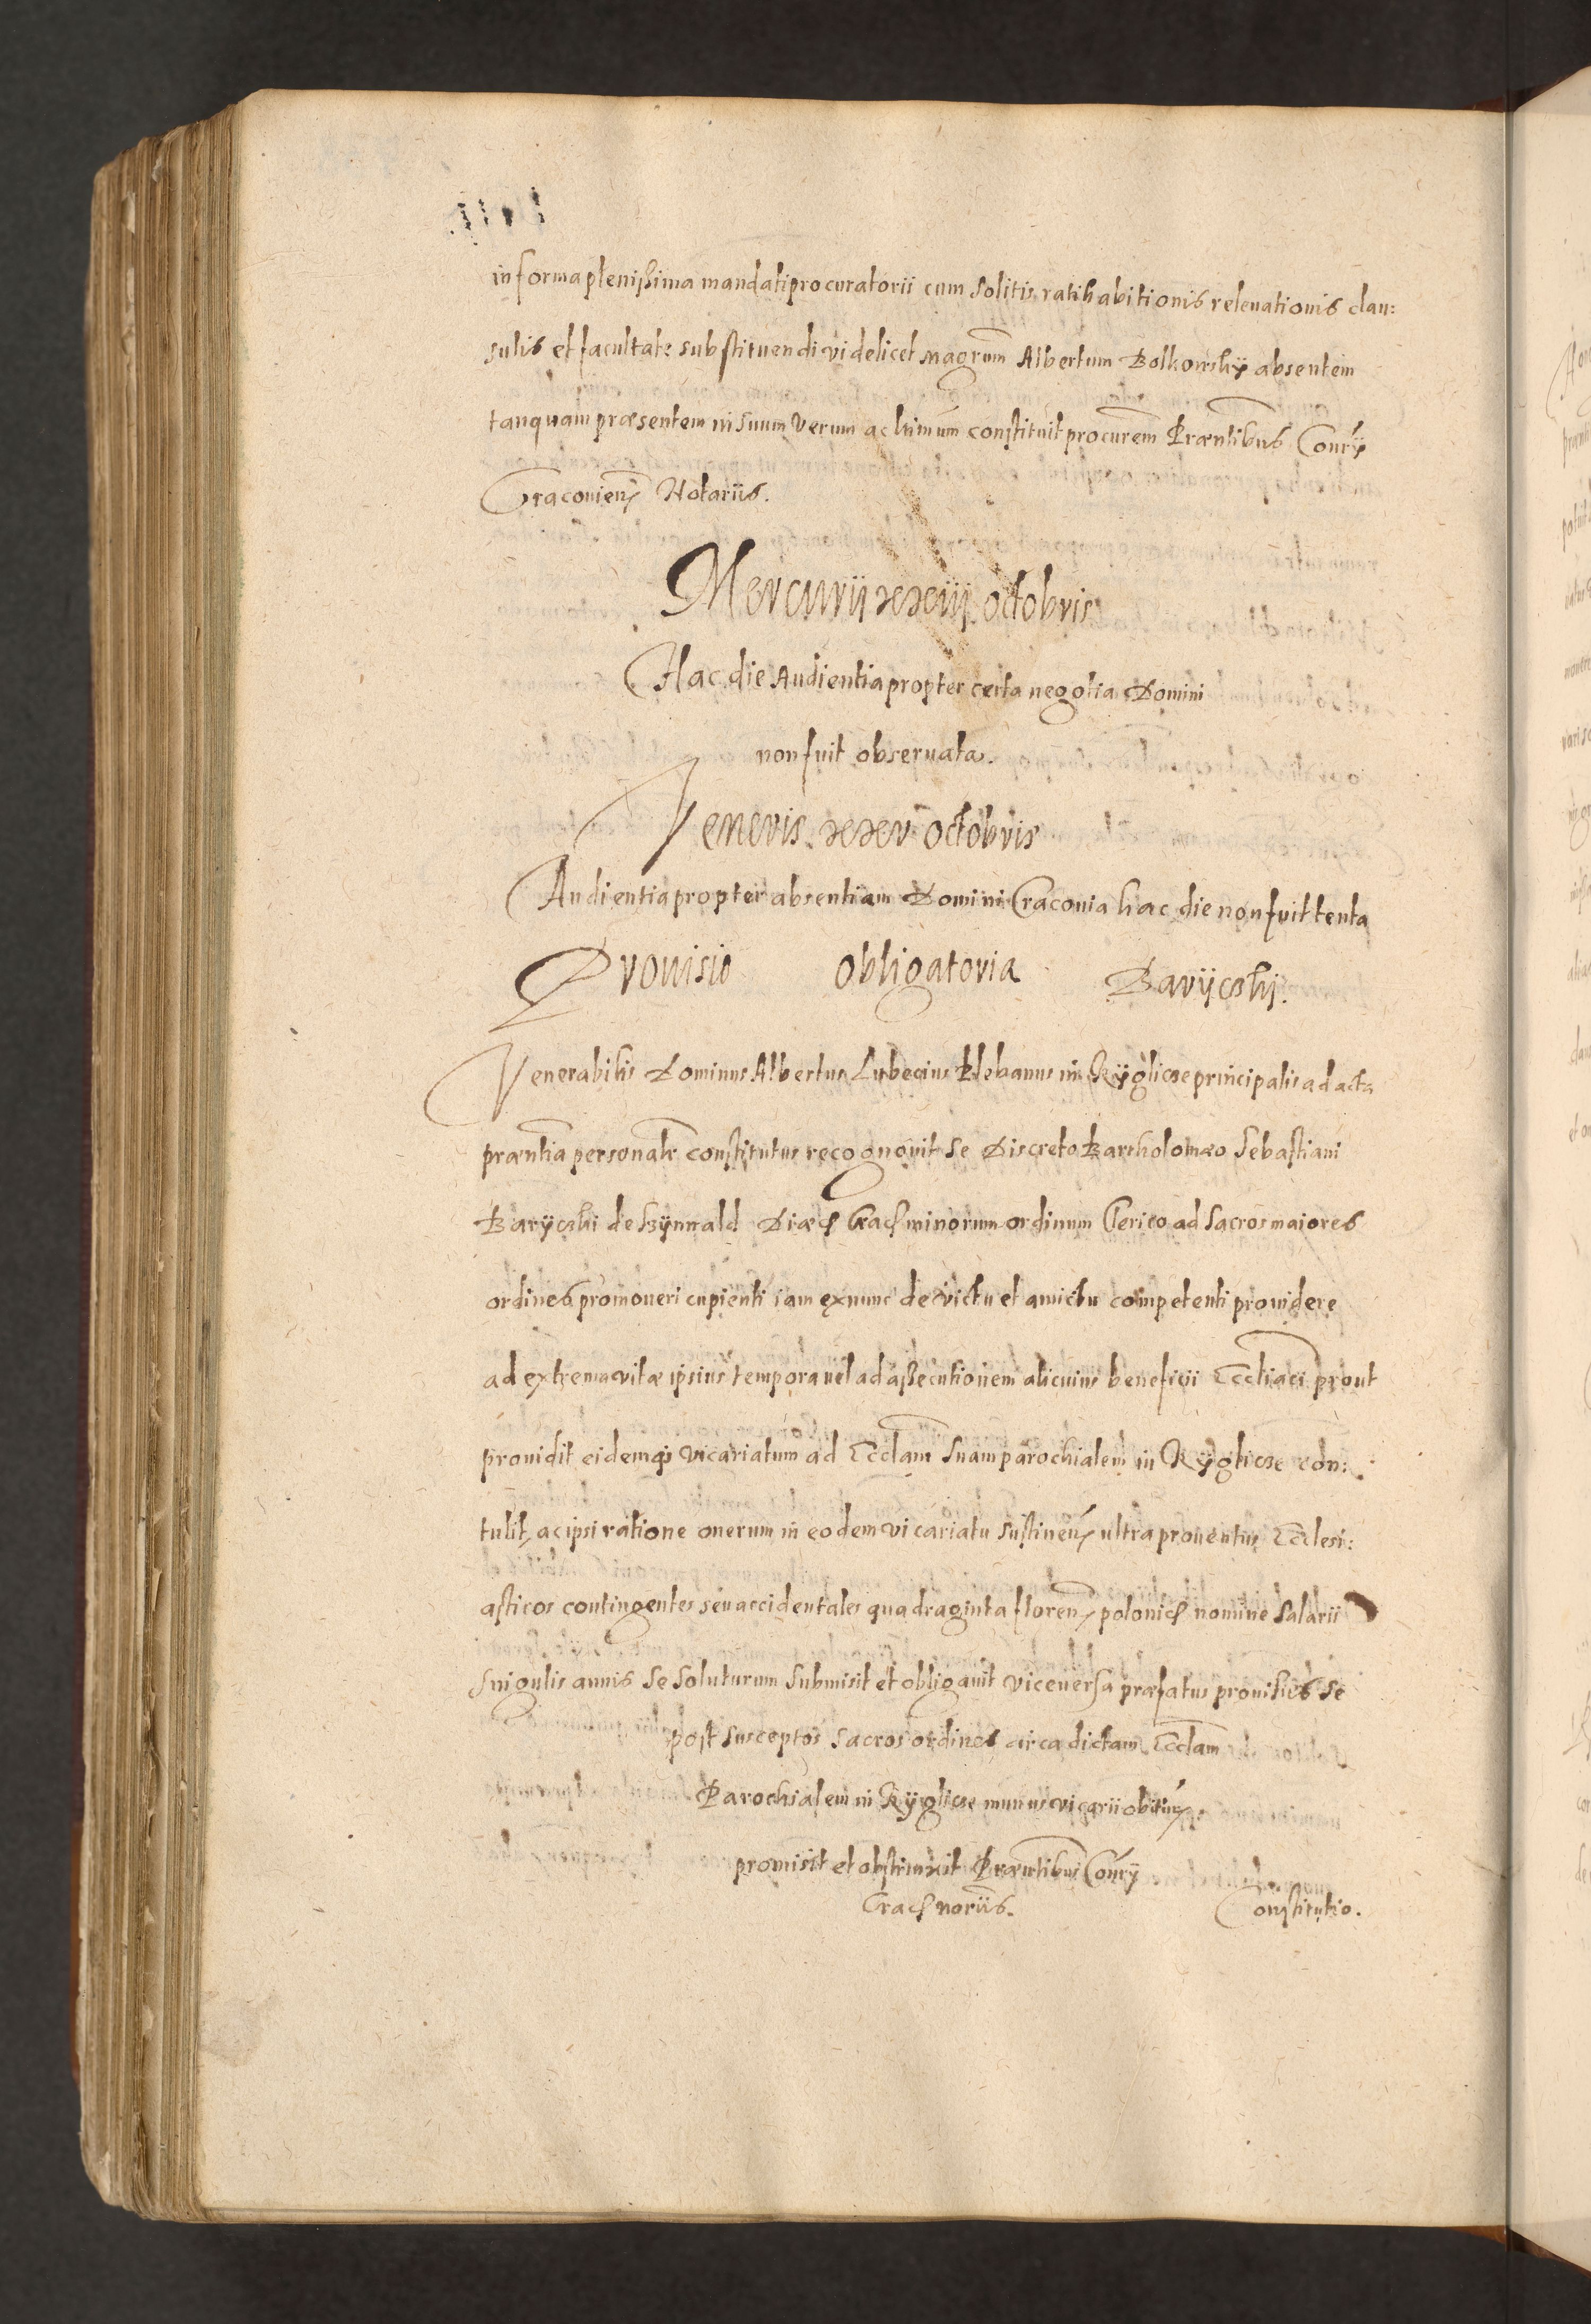 in forma plenissima mandati procuratorii cum solitis ratihabitionis relevationis clau:
sulis et facultate substituendi videlicet Magrum Albertum Bolkowsky absentem
tanquam præsentem in suum verum ac ltimum constituit procurem Præntibus Conrÿ
Cracovien Notariis.
Mercurii xxiij octobris
Hac die Audientia propter certa negotia Domini
non fuit observata.
Veneris xxv octobris
Audientia propter absentiam Domini Cracovia hac die non fuit tenta
Provisio obligatoria Barÿcski.
Venerabilis Dominus Albertus Lubecius Plebanus in Rÿglicze principalis ad acta
præntia personalr constitutus recognovit se Discreto Bartholomæo Sebastiani
Barÿcski de Szÿnwald Diæc Crac minorum ordinum Clerico ad sacros maiores
ordines promoveri cupienti iam exnunc de victu et amictu competenti providere
ad extrema vitæ ipsius tempora vel ad assecutionem alicuius beneficii Eccliaci prout
providit eidemq vicariatum ad Ecclam suam parochialem in Rÿglicze con:
tulit, ac ipsi ratione onerum in eodem vicariatu sustinen ultra proventus Ecclesi:
asticos contingentes seu accidentales quadraginta floren polonic nomine salarii
singulis annis se soluturum submisit et obligavit viceversa præfatus provisus se
post susceptos sacros ordines circa dictam Ecclam
Parochialem in Rÿglicze munus vicarii obitur
promisit et obstrinxit Præntibus Conrÿ
Crac noriis.
Constitutio.